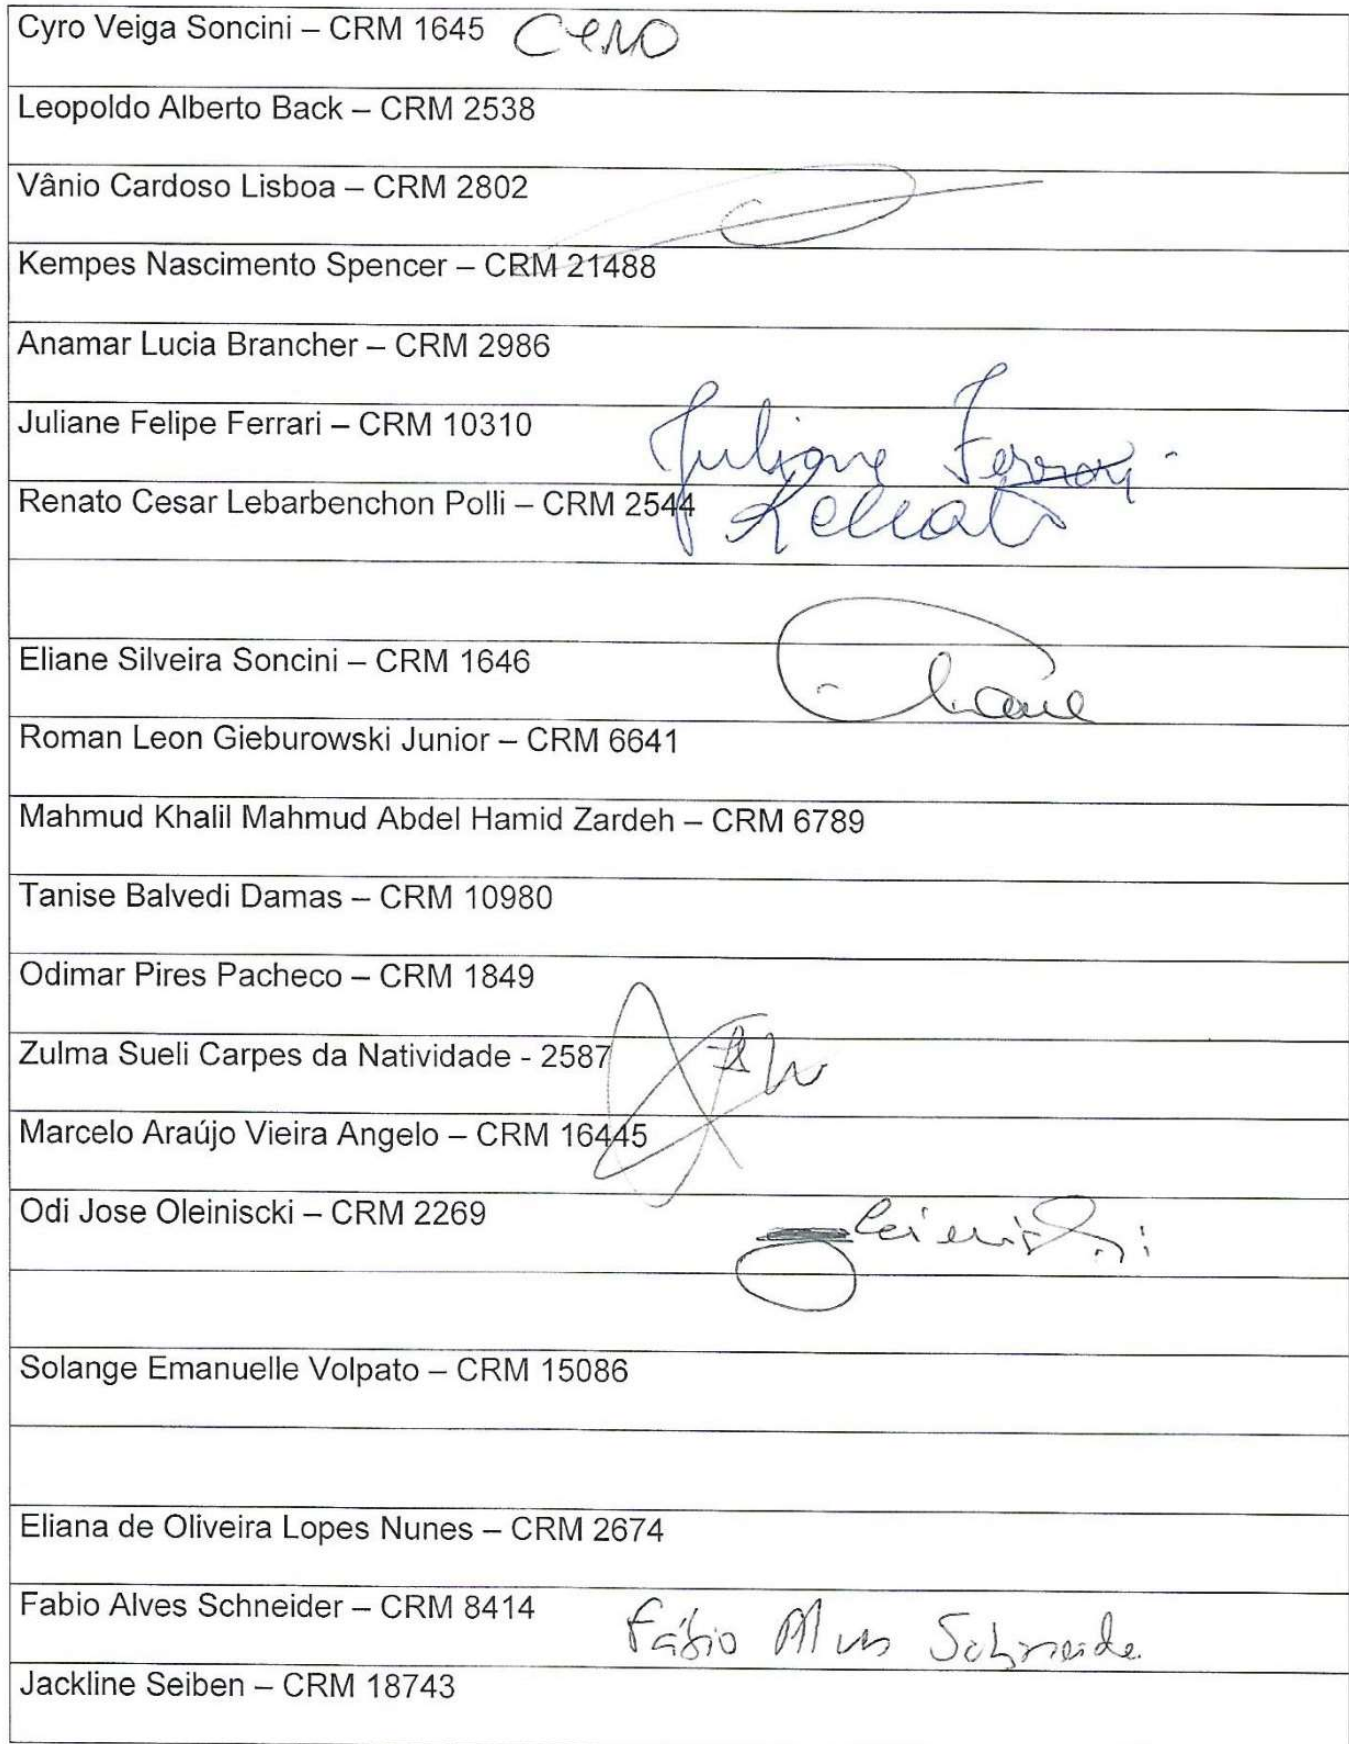 Cyro Veiga Soncini – CRM 1645 Cyro
Leopoldo Alberto Back – CRM 2538
Vânio Cardoso Lisboa – CRM 2802
Kempes Nascimento Spencer – CRM 21488
Anamar Lucia Brancher – CRM 2986
Juliane Felipe Ferrari – CRM 10310 Juliane Ferrari
Renato Cesar Lebarbenchon Polli – CRM 2544 Renato
Eliane Silveira Soncini – CRM 1646 Eliane
Roman Leon Gieburowski Junior – CRM 6641
Mahmud Khalil Mahmud Abdel Hamid Zardeh – CRM 6789
Tanise Balvedi Damas – CRM 10980
Odimar Pires Pacheco – CRM 1849
Zulma Sueli Carpes da Natividade - 2587
Marcelo Araújo Vieira Angelo – CRM 16445
Odi Jose Oleiniscki – CRM 2269
Solange Emanuelle Volpato – CRM 15086
Eliana de Oliveira Lopes Nunes – CRM 2674
Fabio Alves Schneider – CRM 8414 Fábio Alves Schneider
Jackline Seiben – CRM 18743